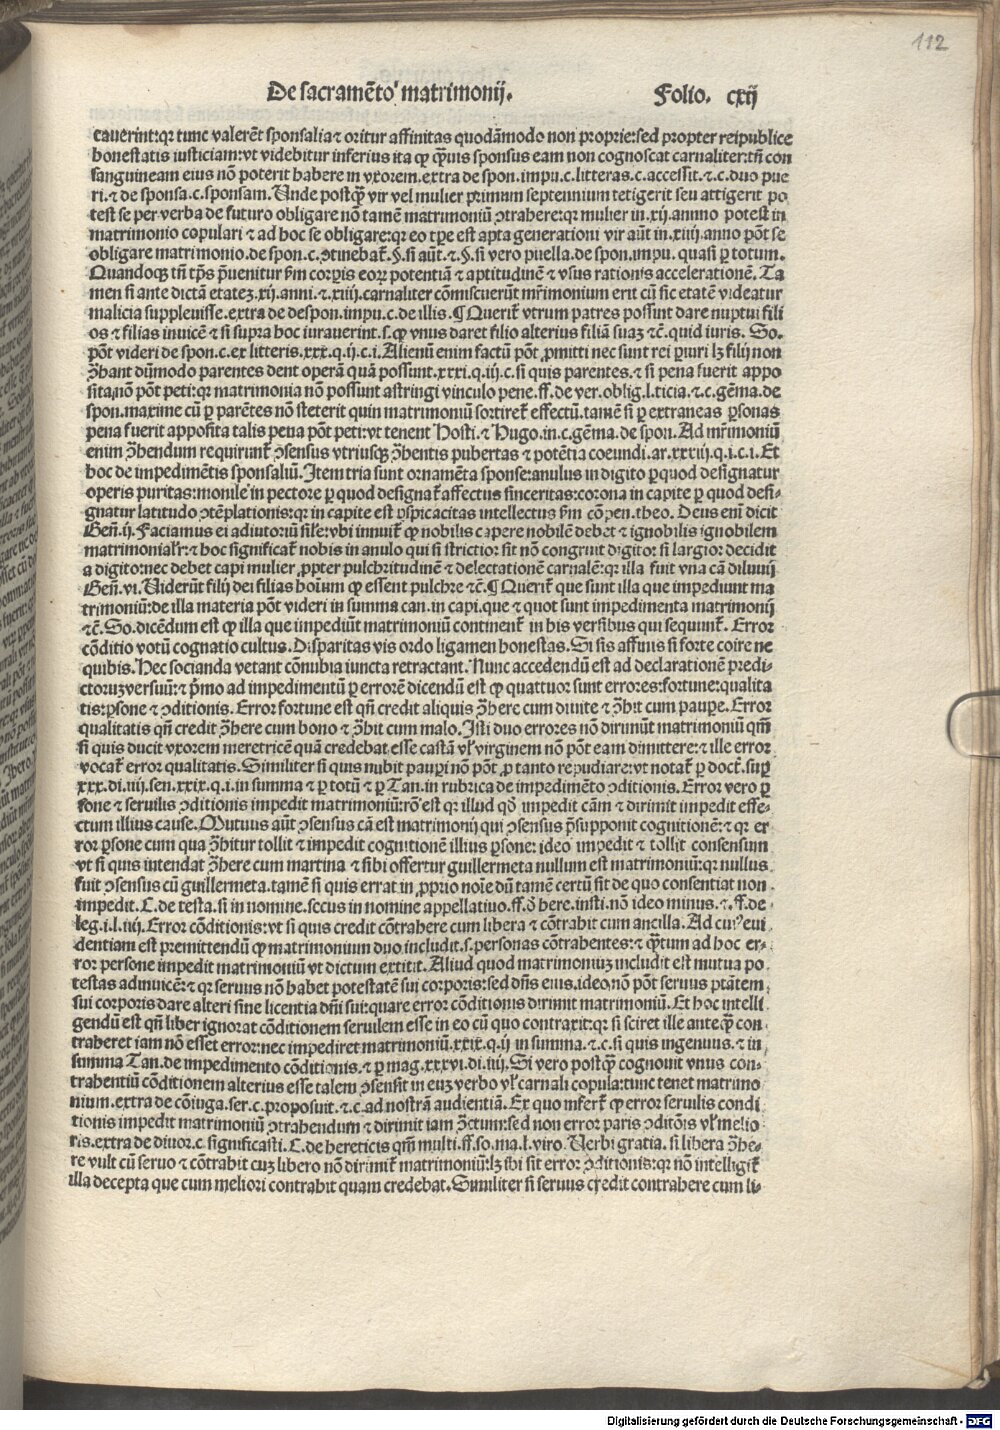 112
De sacramẽto matrimonij. Folio. cxij
cauerint:qꝛ tunc valerẽt sponsalia ⁊ oritur affinitas quodãmodo non proprie:sed propter reipublice
honestatis iusticiam:vt videbitur inferius ita ꝙ qͣꝫuis sponsus eam non cognoscat carnaliter:tñ con
sanguineam eius nõ poterit habere in vxorem.extra de spon.impu.c.litteras.c.accessit.⁊.c.duo pue
ri.⁊ de sponsa.c.sponsam. Unde postqͣꝫ vir vel mulier primum septennium tetigerit seu attigerit po
test se per verba de futuro obligare nõ tamẽ matrimoniũ ꝯtrahere:qꝛ mulier in.xij.annno potest in
matrimonio copulari ⁊ ad hoc se obligare:qꝛ eo tꝑe est apta generationi vir aũt in.xiiij.anno põt se
obligare matrimonio.de spon.c.ꝯtinebat᷑.§.si aũt.⁊.§.si vero puella.de spon.impu.quasi ꝑ totum.
Quandoqꝫ tñ tp̃s p̃uenitur ẜm corꝑis eoꝝ potentiã ⁊ aptitudinẽ ⁊ vsus rationis accelerationẽ. Ta
men si ante dictã etateꝫ.xij.anni.⁊.xiiij.carnaliter cõmiscuerũt mr̃imonium erit cũ sic etatẽ videatur
malicia suppleuisse.extra de despon.impu.c.de illis.¶ Querit᷑ vtrum patres possunt dare nuptui fili
os ⁊ filias inuicẽ ⁊ si supra hoc iurauerint.s.ꝙ vnus daret filio alterius filiã suaꝫ ⁊c̃.quid iuris. So.
põt videri de spon.c.ex litteris.xxx.q.ij.c.i. Alienũ enim factũ põt ꝓmitti nec sunt rei ꝑiuri lꝫ filij non
ꝯ̃hant dũmodo parentes dent operã quã possunt.xxxi.q.iij.c.si quis parentes.⁊ si pena fuerit appo
sita nõ põt peti:qꝛ matrimonia nõ possunt astringi vinculo pene.ff.de ver.oblig.l.ticia.⁊.c.gẽma.de
spon.maxime cũ ꝑ parẽtes nõ steterit quin matrimoniũ sortiret᷑ effectũ.tamẽ si ꝑ extraneas ꝑsonas
pena fuerit apposita talis pena põt peti:vt tenent Hosti.⁊ Hugo.in.c.gẽma.de spon. Ad mr̃imoniũ
enim ꝯ̃hendum requirunt᷑ ꝯsensus vtriusqꝫ ꝯ̃hentis pubertas ⁊ potẽtia coeundi.ar.xxxiij.q.i.c.i. Et
hoc de impedimẽtis sponsaliũ. Item tria sunt ornamẽta sponse:anulus in digito ꝑ quod designatur
operis puritas:monile in pectore ꝑ quod designat᷑ affectus sinceritas:corona in capite ꝑ quod desi⸗
gnatur latitudo ꝯtẽplationis:qꝛ in capite est ꝑspicacitas intellectus ẜm cõpen.theo. Deus eni dicit
Geñ.ij. Faciamus ei adiutoriũ sil̃e:vbi innuit᷑ ꝙ nobilis capere nobilẽ debet ⁊ ignobilis ignobilem
matrimonialr̃:⁊ hoc significat᷑ nobis in anulo qui si strictior sit nõ congruit digito: si largior decidit
a digito:nec debet capi mulier ꝓpter pulchritudinẽ ⁊ delectationẽ carnalẽ:qꝛ illa fuit vna cã diluuij
Geñ.vi. Uiderũt filij dei filias hoĩum ꝙ essent pulchre ⁊c̃.¶ Querit᷑ que sunt illa que impediunt ma
trimoniũ:de illa materia põt videri in summa can.in capi.que ⁊ quot sunt impedimenta matrimonij
⁊c̃. So.dicẽdum est ꝙ illa que impediũt matrimoniũ continent᷑ in his versibus qui sequunt᷑. Error
cõditio votũ cognatio cultus. Disparitas vis ordo ligamen honestas. Si sis affinis si forte coire ne
quibis. Hec socianda vetant cõnubia iuncta retractant. Nunc accedendũ est ad declarationẽ predi⸗
ctoruꝫ versuũ:⁊ p̃mo ad impedimentũ ꝑ errorẽ dicendũ est ꝙ quattuor sunt errores:fortune:qualita
tis:ꝑsone ⁊ ꝯditionis. Error fortune est qñ credit aliquis ꝯ̃here cum diuite ⁊ ꝯ̃hit cum pauꝑe. Error
qualitatis qñ credit ꝯ̃here cum bono ⁊ ꝯ̃hit cum malo. Isti duo errores nõ dirimũt matrimoniũ qm̃
si quis ducit vxorem meretricẽ quã credebat esse castã vł virginem nõ põt eam dimittere:⁊ ille error
vocat᷑ error qualitatis. Similiter si quis nubit pauꝑi nõ põt ꝓ tanto repudiare:vt notat᷑ ꝑ doct.suꝑ
xxx.di.iiij.sen.xxix.q.i.in summa ⁊ ꝑ totũ ⁊ ꝑ Tan.in rubrica de impedimẽto ꝯditionis. Error vero ꝑ
sone ⁊ seruilis ꝯditionis impedit matrimoniũ:rõ est qꝛ illud qð impedit cãm ⁊ dirimit impedit effe⸗
ctum illius cause. Mutuus aũt ꝯsensus cã est matrimonij qui ꝯsensus p̃supponit cognitionẽ:⁊ qꝛ er
ror ꝑsone cum qua ꝯ̃hitur tollit ⁊ impedit cognitionẽ illius ꝑsone: ideo impedit ⁊ tollit consensum
vt si quis intendat ꝯ̃here cum martina ⁊ sibi offertur guillermeta nullum est matrimoniũ:qꝛ nullus
fuit ꝯsensus cũ guillermeta.tamẽ si quis errat in ꝓprio noĩe dũ tamẽ certũ sit de quo consentiat non
impedit. C.de testa.si in nomine.secus in nomine appellatiuo.ff.ð here.insti.nõ ideo minus.⁊.ff.de
leg.i.l.iiij. Error cõditionis:vt si quis credit cõtrahere cum libera ⁊ cõtrahit cum ancilla. Ad cuiꝰ eui
dentiam est premittendũ ꝙ matrimonium duo includit.s.personas cõtrahentes:⁊ qͣꝫtum ad hoc er⸗
ror persone impedit matrimoniũ vt dictum extitit. Aliud quod matrimoniuꝫ includit est mutua po
testas adinuicẽ:⁊ qꝛ seruus nõ habet potestatẽ sui corporis:sed dñs eius.ideo nõ põt seruus ptãtem
sui corporis dare alteri sine licentia dñi sui:quare error cõditionis dirimit matrimoniũ. Et hoc intelli
gendũ est qñ liber ignorat cõditionem seruilem esse in eo cũ quo contraxit:qꝛ si sciret ille anteqͣꝫ con⸗
traheret iam nõ esset error:nec impediret matrimoniũ.xxix.q.ij in summa.⁊ c.si quis ingenuus.⁊ in
summa Tan.de impedimento cõditionis.⁊ ꝑ mag.xxxvi.di.iiij. Si vero postqͣꝫ cognouit vnus con⸗
trahentiũ cõditionem alterius esse talem ꝯsensit in euꝫ verbo vł carnali copula:tunc tenet matrimo
nium.extra de cõiuga.ser.c.proposuit.⁊.c.ad nostrã audientiã. Ex quo infert᷑ ꝙ error seruilis condi
tionis impedit matrimoniũ ꝯtrahendum ⁊ dirimit iam ꝯ̃ctum:sed non error paris ꝯditõnis vł melio
ris.extra de diuor.c.significasti. C.de hereticis qm̃ multi.ff.so.ma.l.viro. Uerbi gratia.si libera ꝯ̃he⸗
re vult cũ seruo ⁊ cõtrahit cuꝫ libero nõ dirimit᷑ matrimoniũ:lꝫ ibi sit error ꝯditionis:qꝛ nõ intelligit᷑
illa decepta que cum meliori contrahit quam credebat. Similiter si seruus credit contrahere cum li⸗
Digitalisierung gefördert durch die Deutsche Forschungsgemeinschaft - DFG